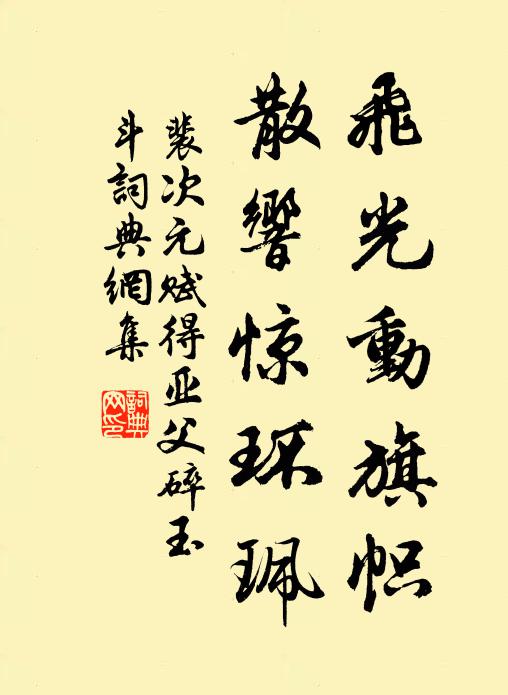 飛光動旗帜
散響惊环珮
裴次元赋得亚父碎玉
斗詞典網集
詞典
网印